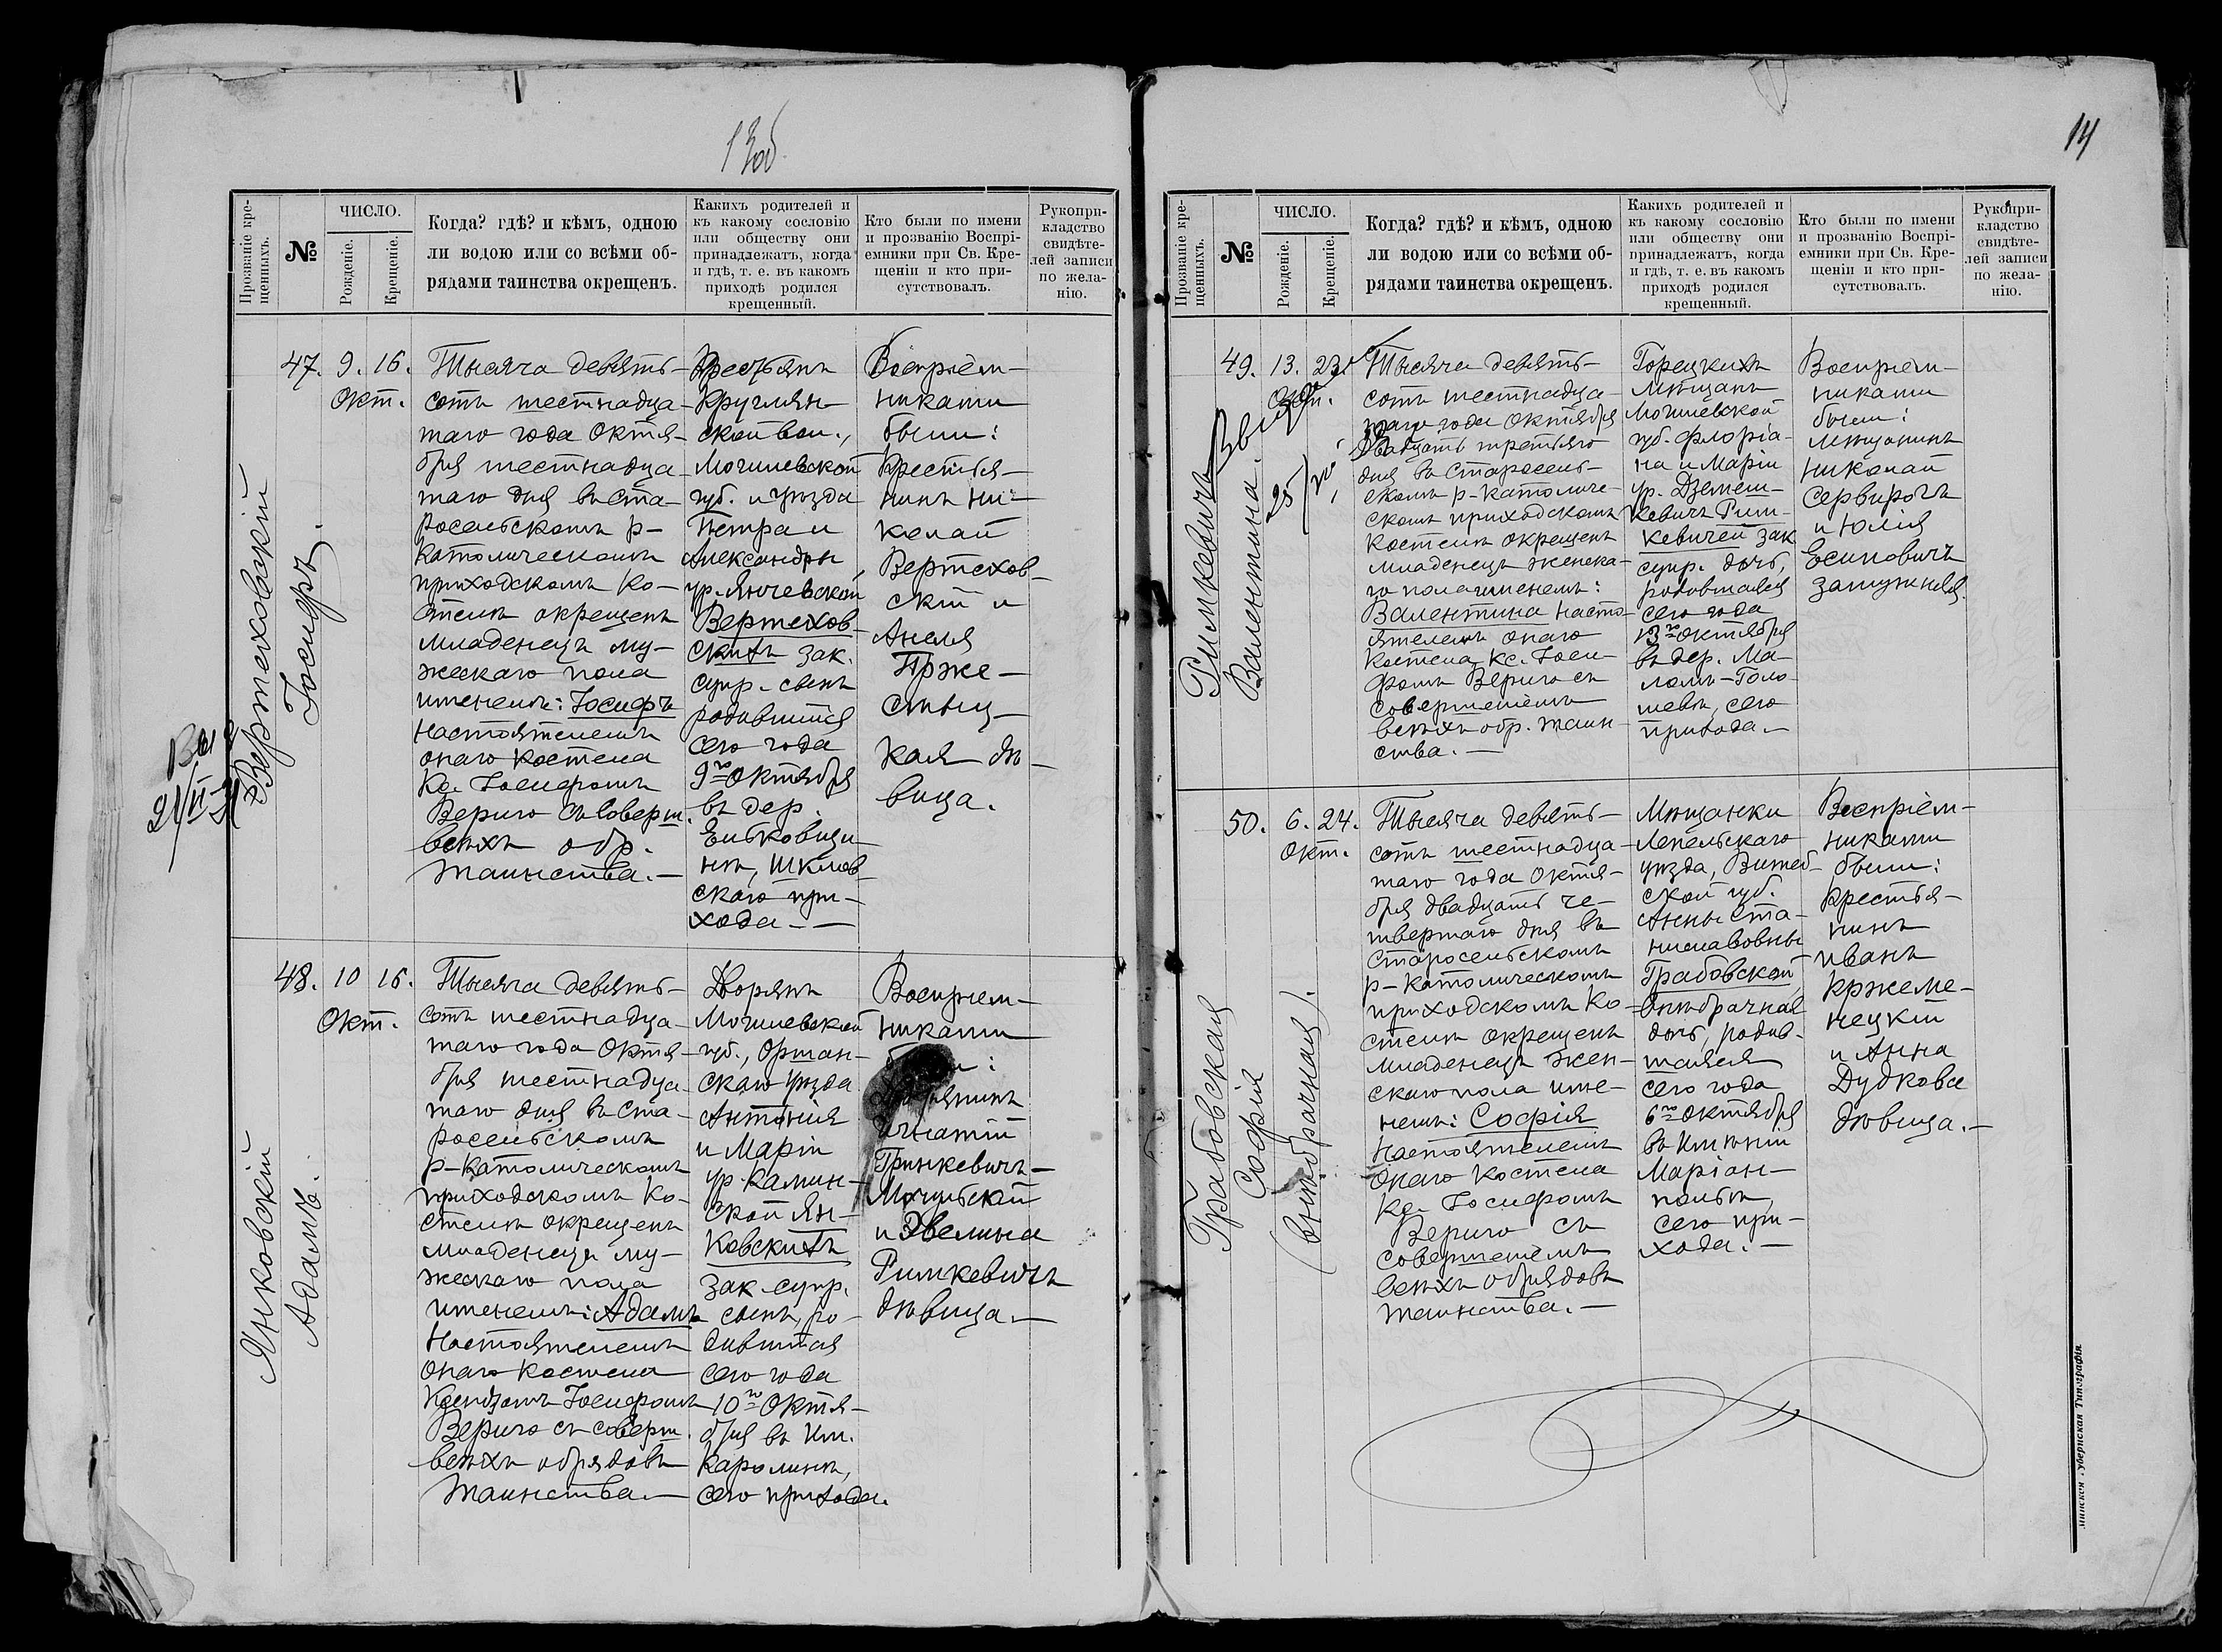 13об
Прозваніе кре-
щенныхъ.
№
ЧИСЛО.
Рожденіе.
Крещеніе.
Когда? гдѣ? и кѣмъ, одною
ли водою или со всѣми об-
рядами таинства окрещенъ.
Какихъ родителей и
къ какому сословію
или обществу они
принадлежатъ, когда
и гдѣ, т. е. въ какомъ
приходѣ родился
крещенный.
Кто были по имени
и прозванію Воспрі-
емники при Св. Кре-
щеніи и кто при-
сутствовалъ.
Рукопри-
кладство
свидѣте-
лей записи
по жела-
нію.
Вертеховскій
Іосифъ.
47. 9. 16.
Окт.
Тысяча девять-
сотъ шестнадца-
таго года Октя-
бря шестнадца-
таго дня въ Ста-
росельскомъ р-
католическомъ
приходскомъ ко-
стелѣ окрещенъ
младенецъ му-
жескаго пола
именемъ: Іосифъ
настоятелемъ
онаго костела
Кс. Іосифомъ
Вериго съ соверш.
всѣхъ обр.
таинства.—
Крестьянъ
Круглян-
ской вол.,
Могилевской
губ. и уѣзда
Петра и
Александры
ур. Янчевской
Вертехов-
скихъ зак.
супр. сынъ
родившійся
сего года
9го Октября
въ дер.
Елбковщи-
нѣ, Шклов-
скаго при-
хода.—
Воспріем-
никами
были:
Крестья-
нинъ Ни-
колай
Вертехов-
скій и
Анеля
Прже-
смыц-
кая дѣ-
вица.
Янковскій
Адамъ.
48. 10 16.
Окт.
Тысяча девять-
сотъ шестнадца-
таго года Октя-
бря шестнадца-
таго дня въ Ста-
росельскомъ
р-католическомъ
приходскомъ ко-
стелѣ окрещенъ
младенецъ му-
жескаго пола
именемъ: Адамъ
настоятелемъ
онаго костела
Ксендзомъ Іосифомъ
Вериго съ соверш.
всѣхъ обрядовъ
таинства.—
Дворянъ
Могилевской
губ., Оршан-
скаго уѣзда
Антонія
и Маріи
ур. Камин-
ской Ян-
ковскихъ
зак. супр.
сынъ, ро-
дившійся
сего года
10го Октя-
бря въ им.
Каролинѣ,
сего прихода.
Воспріем-
никами
были:
Дворянинъ
Игнатій
Гринкевичъ-
Мочульскій
и Эвелина
Римкевичъ
дѣвица.—
14
Прозваніе кре-
щенныхъ.
№
ЧИСЛО.
Рожденіе.
Крещеніе.
Когда? гдѣ? и кѣмъ, одною
ли водою или со всѣми об-
рядами таинства окрещенъ.
Какихъ родителей и
къ какому сословію
или обществу они
принадлежатъ, когда
и гдѣ, т. е. въ какомъ
приходѣ родился
крещенный.
Кто были по имени
и прозванію Воспрі-
емники при Св. Кре-
щеніи и кто при-
сутствовалъ.
Рукопри-
кладство
свидѣте-
лей записи
по жела-
нію.
Римкевичъ
Валентина.
49. 13. 23.
Окт.
Тысяча девять-
сотъ шестнадца-
таго года Октября
двадцать третьяго
дня въ Старосель-
скомъ р-католиче-
скомъ приходскомъ
костелѣ окрещенъ
младенецъ женска-
го пола именемъ:
Валентина насто-
ятелемъ онаго
костела Кс. Іоси-
фомъ Вериго съ
совершеніемъ
всѣхъ обр. таин-
ства.—
Горецкихъ
мѣщанъ
Могилевской
губ. Флоріа-
на и Маріи
ур. Дземеш-
кевичъ Рим-
кевичей зак
супр. дочь,
родившаяся
сего года
13го Октября
въ дер. Ма-
ломъ-Голо-
шевѣ, сего
прихода.—
Воспріем-
никами
были:
мѣщанинъ
Николай
Сервирогъ
и Юлія
Есиповичъ
замужняя.
Грабовская
Софія
(внѣбрачная).
50. 6. 24.
Окт.
Тысяча девять-
сотъ шестнадца-
таго года Октя-
бря двадцать че-
твертаго дня въ
Старосельскомъ
р-католическомъ
приходскомъ ко-
стелѣ окрещенъ
младенецъ жен-
скаго пола име-
немъ: Софія
настоятелемъ
онаго костела
Кс. Іосифомъ
Вериго съ
совершеніемъ
всѣхъ обрядовъ
таинства.—
Мѣщанки
Лепельскаго
уѣзда, Витеб-
ской губ.
Анны Ста-
ниславовны
Грабовской
внѣбрачная
дочь, родив-
шаяся
сего года
6го Октября
въ имѣніи
Маріан-
польѣ,
сего при-
хода.—
Воспріем-
никами
были:
Крестья-
нинъ
Иванъ
Кржеме-
нецкій
и Анна
Дудкова
дѣвица.—
Минская Губернская Типографія